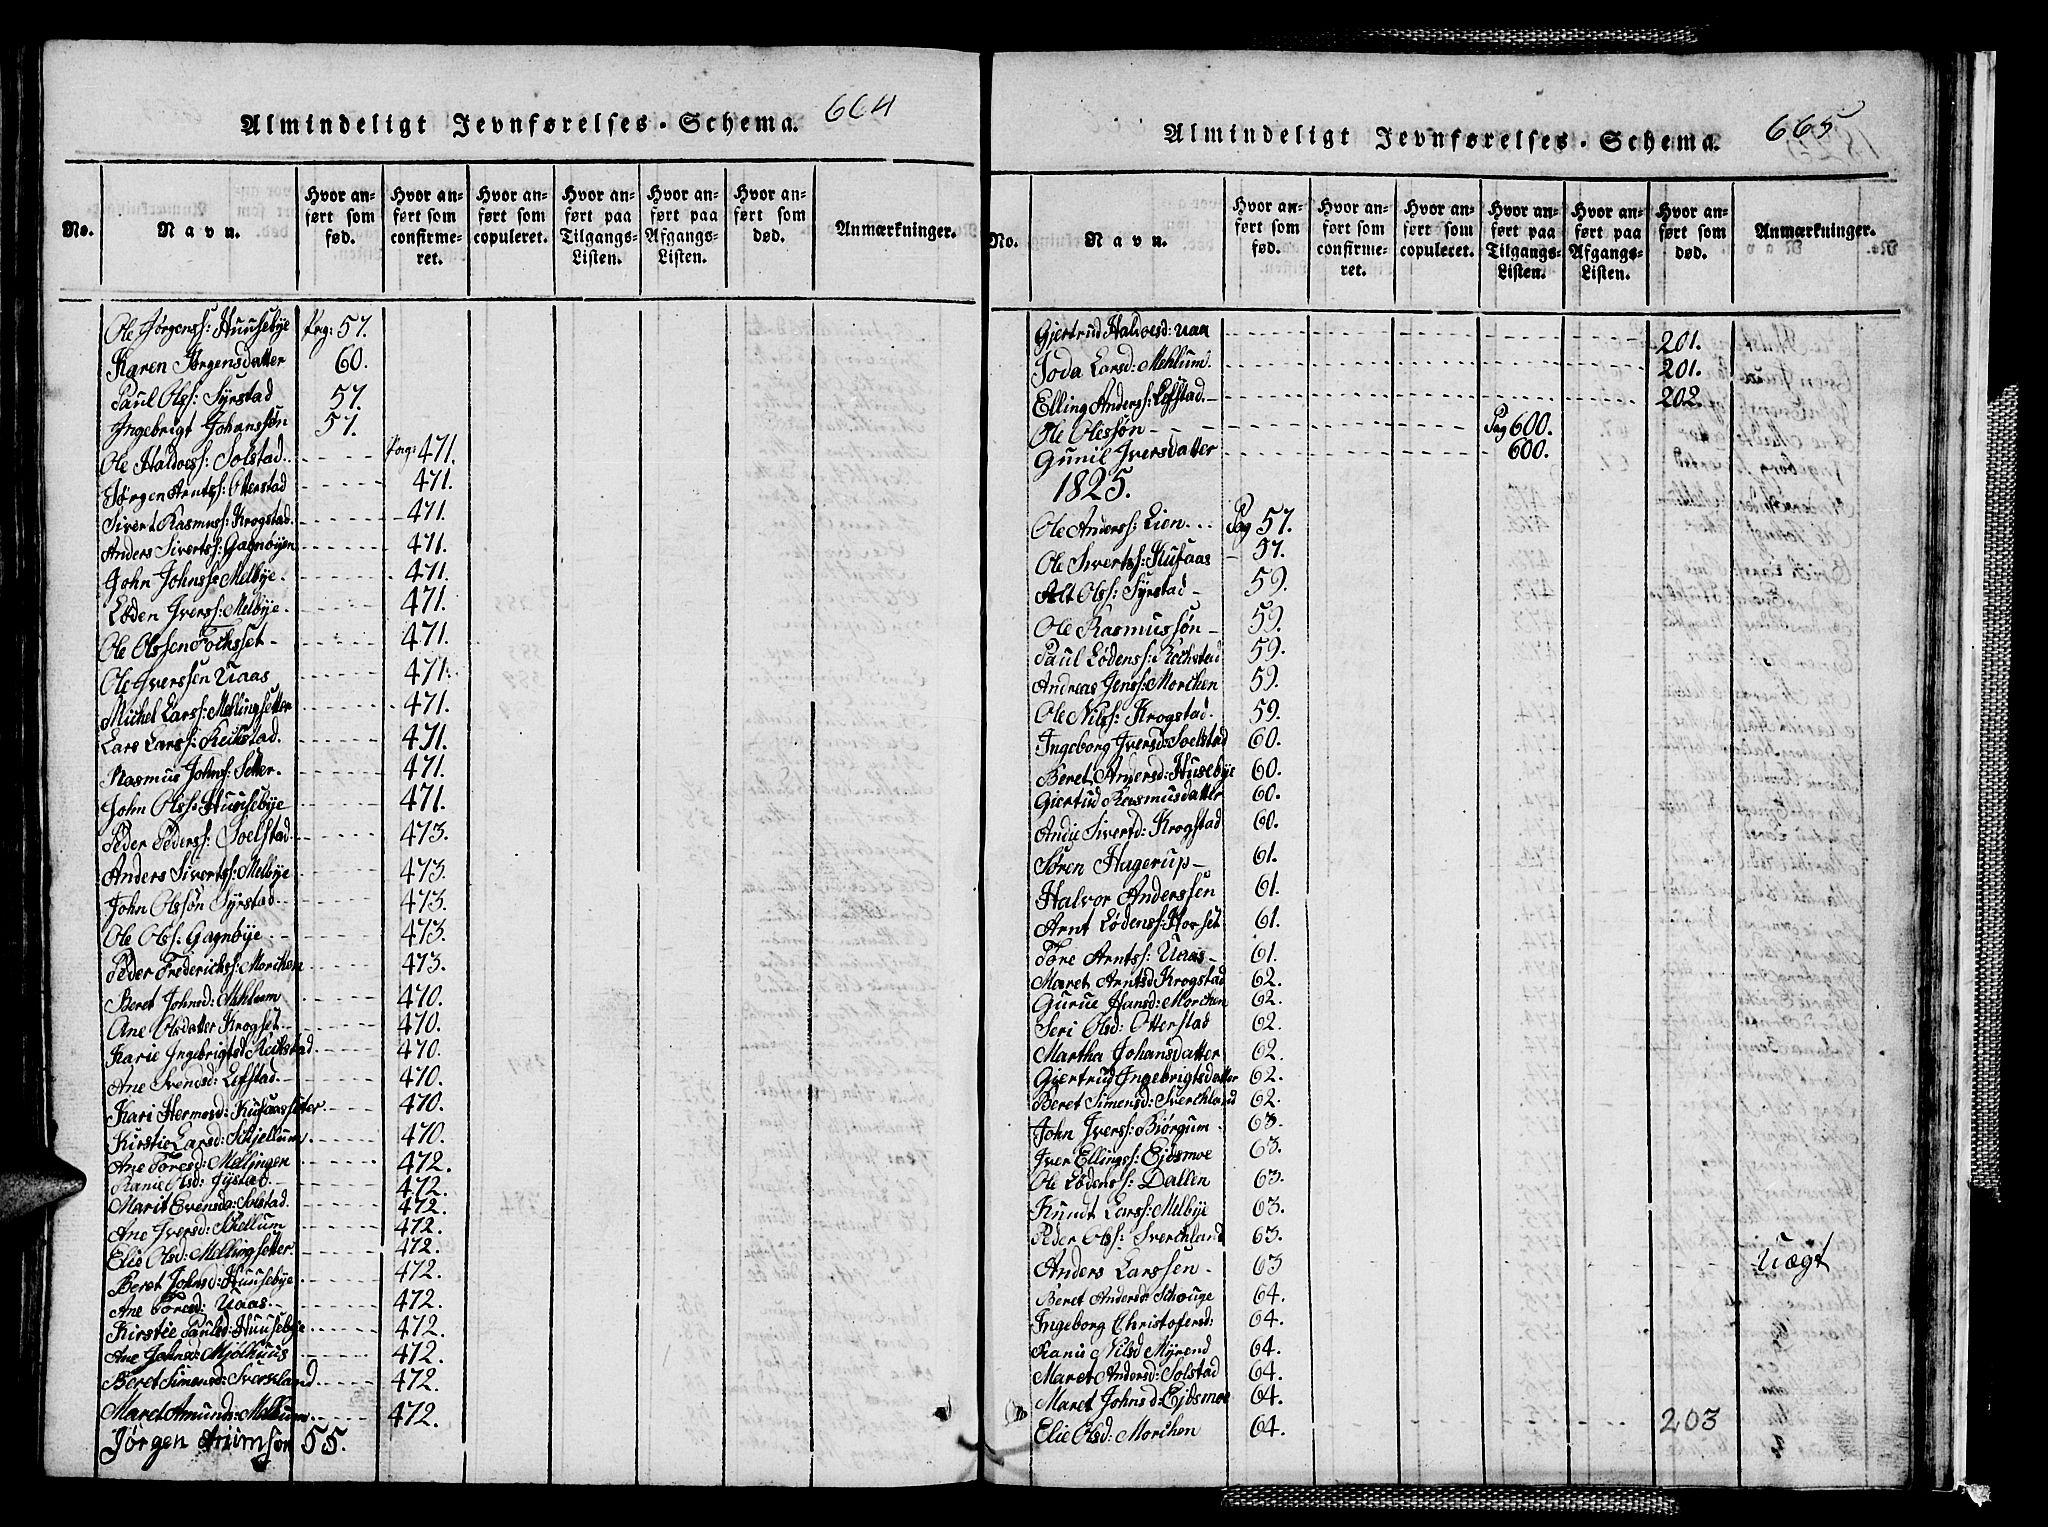 Almindeligt Jevnførelses-Schema. 664
No.
Navn.
Hvor anført som fød.
Hvor anført som confirmeret.
Hvor anført som copuleret.
Hvor anført paa Tilgangs-Listen.
Hvor anført paa Afgangs-Listen.
Hvor anført som død.
Anmærkninger.
Ole Jørgenss: Huusebye Pag: 57.
Karen Jørgensdatter 60.
Paul Olss: Syrstad 57.
Ingebrigt Johanssøn 57.
Ole Haldoess: Solstad Pag: 471.
Jørgen Arntss: Otterstad 471.
Sivert Rasmuss: Krogstad 471.
Anders Sivertss: Gagnøyen 471.
John Johnss: Melbye 471.
Løden Iverss: Melbye 471.
Ole Olssen Foksset 471.
Ole Iverssen Uaas 471.
Michel Larss: Mellingsetter 471.
Lars Larss: Reikstad 471.
Rasmus Johnss: Setter 471.
John Olss: Huusebye 471.
Peder Pederss: Soelstad 473.
Anders Sivertss: Melbye 473.
John Olssøn Syrstad 473.
Ole Olss: Gagnbye 473.
Peder Fredericks: Morchen 473.
Beret Johnsd: Mehlum 470.
Ane Olsdatter Krogset 470.
Karie Ingebrigtsd Reikstad 470.
Ane Svendsd: Lefstad 470.
Kari Hermosd: Kufaassetter 470.
Kirstie Larsd: Skjellum 470.
Ane Toresd: Mellingen 472.
Ranie Olsd: 472.
Marit Evensd: Solstad 472.
Ane Iversd: Skellum 472.
Elie Olsd: Mellingsetter 472.
Beret Johnsd: Huusebye 472.
Ane Toresd: Uaas 472.
Kirstie Paulsd: Huusebye 472.
Ane Johnsd: Mjølhuus 472.
Beret Simensd: Sverkland 472.
Maret Amunds: Mellum 472.
Jørgen 55.
Almindeligt Jevnførelses-Schema. 665
No.
Navn.
Hvor anført som fød.
Hvor anført som confirmeret.
Hvor anført som copuleret.
Hvor anført paa Tilgangs-Listen.
Hvor anført paa Afgangs-Listen.
Hvor anført som død.
Anmærkninger.
Gjertrud Haldoesd: Uaa 201.
Larsd: Mehlum 201.
Elling Anderss: Lefstad 202.
Ole Olessøn Pag 600.
Gunil Iversdatter 600.
1825.
Ole Anderss: Lien Pag 57.
Ole Sivertss: Kufaas 57.
Olss: Syrstad 59.
Ole Rasmussøn 59.
Paul Lødenss: Rechstad 59.
Andreas Jenss: Morchen 59.
Ole Nilss: Krogstad 59.
Ingeborg Iversd: Soelstad 60.
Beret Andersd: Husebye 60.
Giertud Rasmusdatter 60.
Sivertd: Krogstad 60.
Søren Hagerup 61.
Halvor Anderssen 61.
Arnt Lødenss: Horset 61.
Tore Arntss: Uaas 61.
Maret Arntsd Krogstad 62.
Gurue Hansd: Morchen 62.
Seri Olsd: Otterstad 62.
Martha Johansdatter 62.
Gjertrud Ingebrigtsdatter 62.
Beret Simensd: Sverchland 62.
John Iverss: Biørgum 63.
Iver Ellingss: Eidsmoe 63.
Ole Lødenss: Dallen 63.
Knudt Larss: Melbye 63.
Peder Olss: Sverchland 63.
Anders Larssen 63 Uægt
Beret Andersd: Schouge 64.
Ingeborg Christofersd: 64.
Ranie Nilsd Myrend 64.
Maret Andersd: Solstad 64.
Maret Johnsd: Ejdsmoe 64.
Elie Olsd: Morchen 64. 203